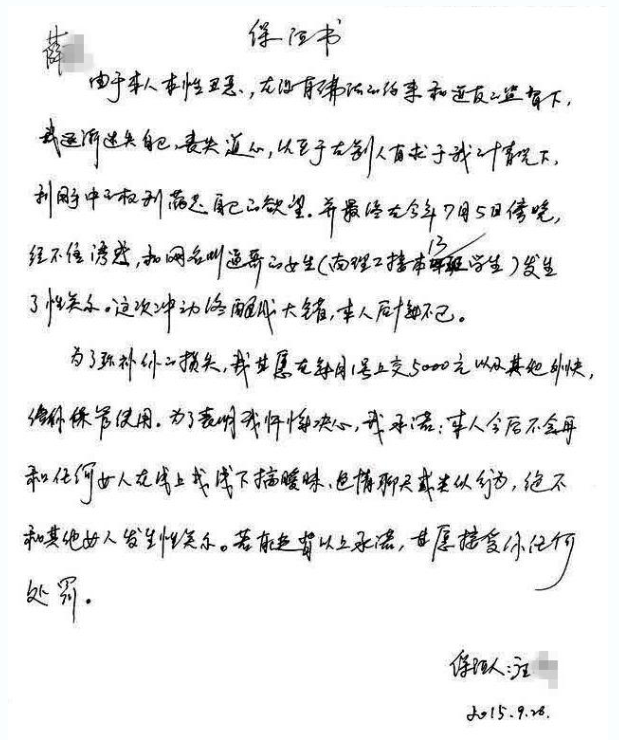 保证书
薛
由于本人本性丑恶,在没有佛法的约束和道友的监督下,
我逐渐迷失自己,丧失道心,以至于在别人有求于我之情况下,
利用手中的权利满足自己的欲望。并最终在今年7月5日傍晚,
经不住诱惑,和网名叫逗哥的女生(南理工接本13学生)发生
了性关系。这次冲动终酿成大错,本人后悔不已。
为了弥补你的损失,我甘愿在每月1号上交5000元以及其他外快,
给你保管使用。为了表明我忏悔决心,我承诺:本人今后不会再
和任何女人在线上或线下搞暧昧、色情聊天或类似行为,绝不
和其他女人发生性关系。若有违背以上承诺,甘愿接受你任何
处罚。
保证人:汪
2015.9.28.